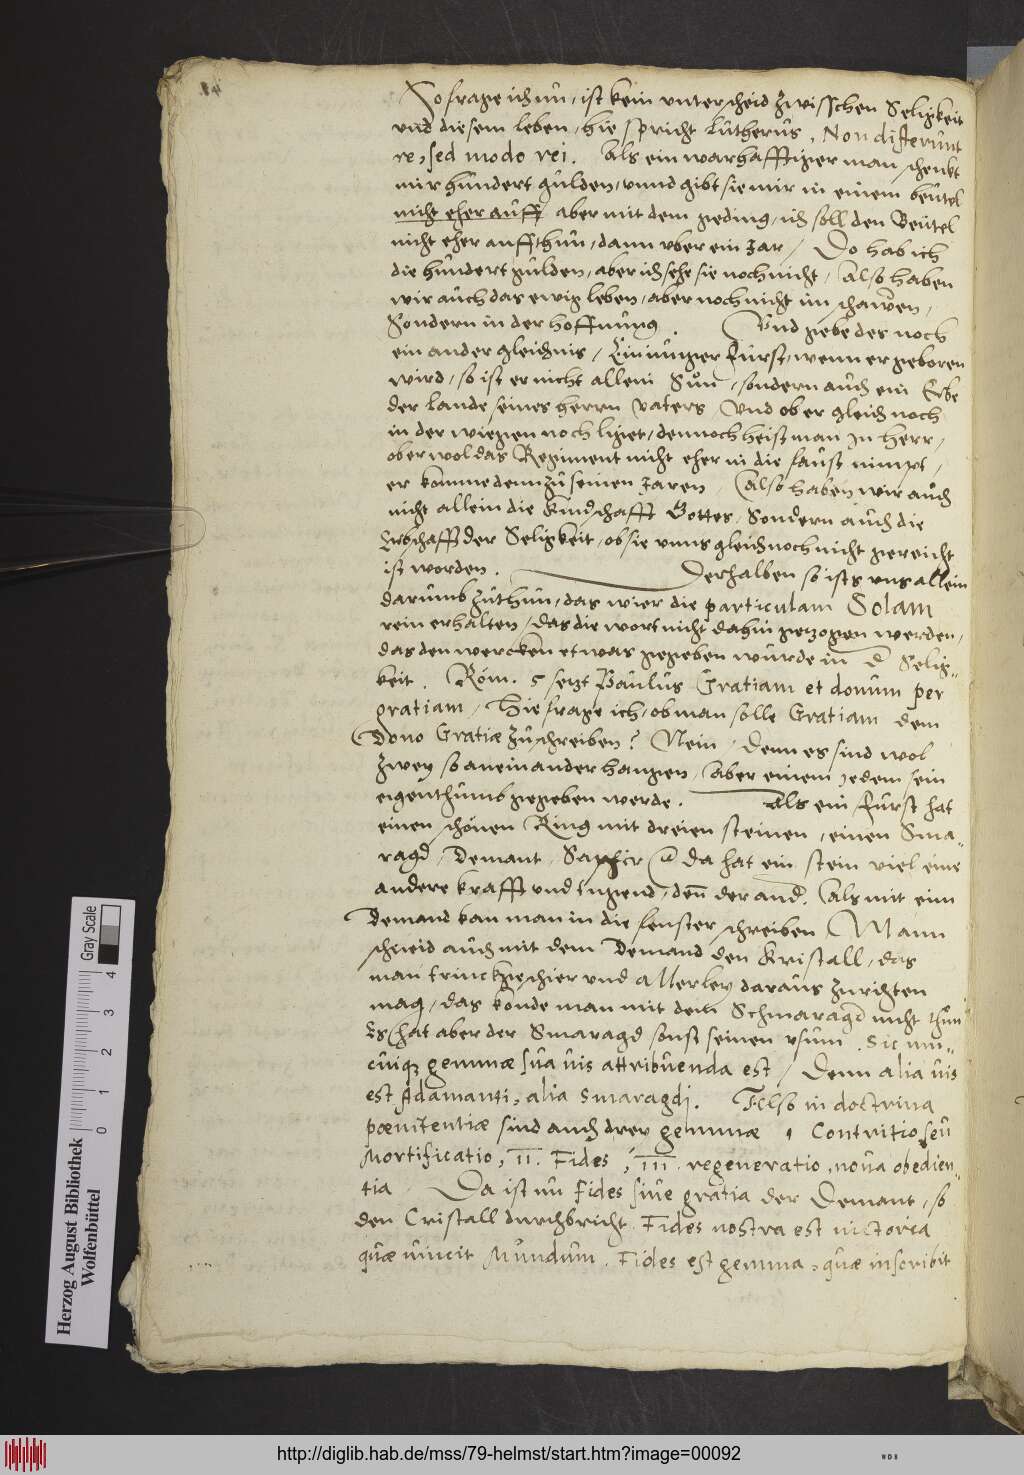 84
So frage ich nu, ist kein unterscheid zwisschen Seligkeit
und diesem leben, hie spricht Lutherus, Non differunt
re, sed modo rei. Als ein warhafftiger man schenkt
mir hundert gulden, unnd gibt sie mir in einem beutel
nicht eher auff aber mit dem geding, ich soll den Beutel
nicht eher auffthun, dann uber ein Jar, Do hab ich
die hundert gulden, aber ich sehe sie noch nicht, Also haben
wir auch das ewig leben, aber noch nicht im schawen,
Sondern in der hoffnung. Und gebe des noch
ein ander gleichnis, Ein junger furst, wenn er geboren
wird, so ist er nicht allein Sun, sondern auch ein Erbe
der lande seines herrn vaters, Und ob er gleich noch
in der wiegen noch liget, dennoch heist man jn herr,
ober wol das Regiment nicht eher in die faust nimpt,
er komme denn zu seinen Jaren, Also haben wir auch
nicht allein die Kindschafft Gottes, Sondern auch die
Erbschafft der Seligkeit, ob sie unns gleich noch nicht gereicht
ist worden. Derhalben so ists uns allein
darumb zuthun, das wier die particulam Solam
rein erhalten, das die wort nicht dahin gezogen werden,
das den wercken etwas gegeben wurde in d Selig-
keit. Röm. 5 setzt Paulus Gratiam et donum per
gratiam, Hie frage ich, ob man solle Gratiam dem
Dono Gratiæ zuschreiben? Nein, Denn es sind wol
zwey so aneinander hangen, Aber einem jedem sein
eigenthumb gegeben werde. Als ein furst hat
einen schönen Ring mit dreien steinen, einen Sma-
ragd, Demant, Saphir @ da hat ein stein viel eine
andere krafft und tugend, deñ der and. Als mit eim
Demand kan man in die fenster schreiben, Mann
schneid auch mit dem Demand den Kristall, das
man trinckgeschier und allerley daraus zurichten
mag, das konde man mit dem Schmaragd nicht thun
Es hat aber der Smaragd sonst seinen usum. Sic uni-
cuiq; gemmæ sua uis attribuenda est, Denn alia uis
est Adamanti, alia Smaragdj. Also in doctrina
pœnitentiæ sind auch drey gemmæ, I Contritio seu
Mortificatio, II. Fides, III. regeneratio, noua obedien-
tia. Da ist nu fides siue gratia der Demant, so
den Cristall durchbricht. Fides nostra est uictoria
quæ uincit Mundum. Fides est gemma, quæ inscribit
Herzog August Bibliothek
Wolfenbüttel
0 1 2 3 4
Gray Scale
http://diglib.hab.de/mss/79-helmst/start.htm?image=00092
WDB